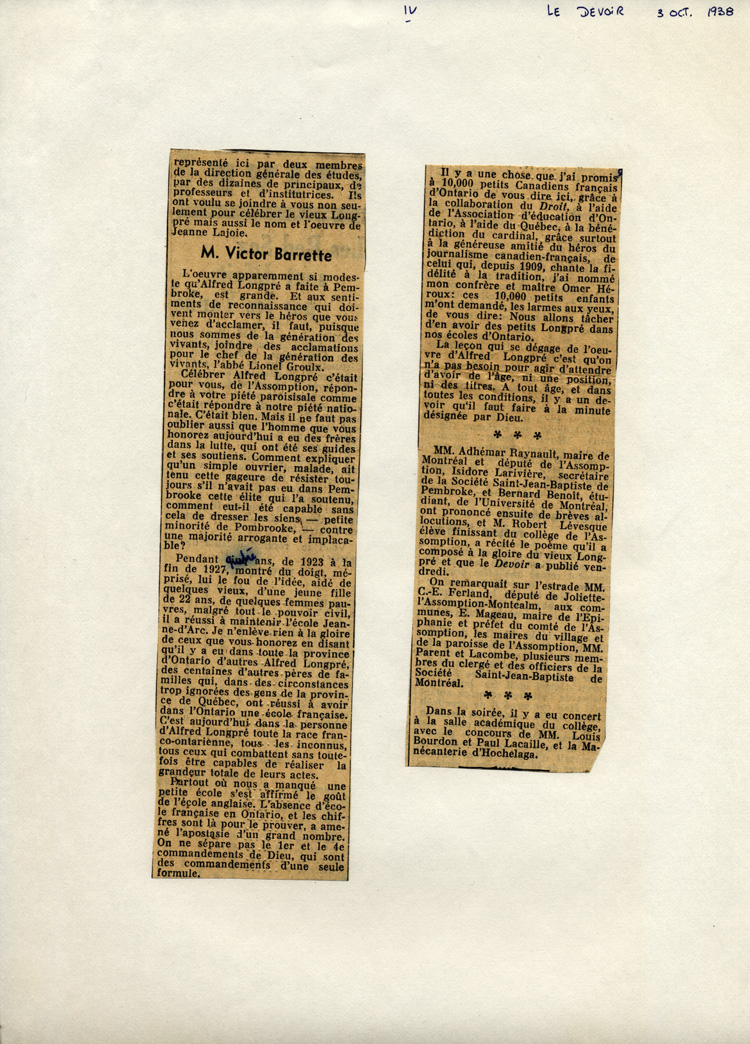 IV
LE DEVOIR 3 OCT. 1938
représenté ici par deux membres
de la direction générale des études,
par des dizaines de principaux, de
professeurs et d'institutrices. Ils
ont voulu se joindre à vous non seu-
lement pour célébrer le vieux Long-
pré mais aussi le nom et l'oeuvre de
Jeanne Lajoie.
M. Victor Barrette
L'oeuvre apparemment si modes-
te qu'Alfred Longpré a faite à Pem-
broke, est grande. Et aux senti-
ments de reconnaissance qui doi-
vent monter vers le héros que vous
venez d'acclamer, il faut, puisque
nous sommes de la génération des
vivants, joindre des acclamations
pour le chef de la génération des
vivants, l'abbé Lionel Groulx.
Célébrer Alfred Longpré c'était
pour vous, de l'Assomption, répon-
dre à votre piété paroisisale comme
c'était répondre à notre piété natio-
nale. C'était bien. Mais il ne faut pas
oublier aussi que l'homme que vous
honorez aujourd'hui a eu des frères
dans la lutte, qui ont été ses guides
et ses soutiens. Comment expliquer
qu'un simple ouvrier, malade, ait
tenu cette gageure de résister tou-
jours s'il n'avait pas eu dans Pem-
brooke cette élite qui l'a soutenu,
comment eut-il été capable sans
cela de dresser les siens, — petite
minorité de Pombrooke, — contre
une majorité arrogante et implaca-
ble?
Pendant quatre ans, de 1923 à la
fin de 1927, montré du doigt, mé-
prisé, lui le fou de l'idée, aidé de
quelques vieux, d'une jeune fille
de 22 ans, de quelques femmes pau-
vres, malgré tout le pouvoir civil,
il a réussi à maintenir l'école Jean-
ne-d'Arc. Je n'enlève rien à la gloire
de ceux que vous honorez en disant
qu'il y a eu dans toute la province
d'Ontario d'autres Alfred Longpré,
des centaines d'autres pères de fa-
milles qui, dans des circonstances
trop ignorées des gens de la provin-
ce de Québec, ont réussi à avoir
dans l'Ontario une école française.
C'est aujourd'hui dans la personne
d'Alfred Longpré toute la race fran-
co-ontarienne, tous les inconnus,
tous ceux qui combattent sans toute-
fois être capables de réaliser la
grandeur totale de leurs actes.
Partout où nous a manqué une
petite école s'est affirmé le goût
de l'école anglaise. L'absence d'éco-
le française en Ontario, et les chif-
fres sont là pour le prouver, a ame-
né l'apostasie d'un grand nombre.
On ne sépare pas le 1er et le 4e
commandements de Dieu, qui sont
des commandements d'une seule
formule.
Il y a une chose que j'ai promis
à 10,000 petits Canadiens français
d'Ontario de vous dire ici, grâce à
la collaboration du Droit, à l'aide
de l'Association d'éducation d'On-
tario, à l'aide du Québec, à la béné-
diction du cardinal, grâce surtout
à la généreuse amitié du héros du
journalisme canadien-français, de
celui qui, depuis 1909, chante la fi-
délité à la tradition, j'ai nommé
mon confrère et maître Omer Hé-
roux: ces 10,000 petits enfants
m'ont demandé, les larmes aux yeux,
de vous dire: Nous allons tâcher
d'en avoir des petits Longpré dans
nos écoles d'Ontario.
La leçon qui se dégage de l'oeu-
vre d'Alfred Longpré c'est qu'on
n'a pas besoin pour agir d'attendre
d'avoir de l'âge, ni une position,
ni des titres. A tout âge, et dans
toutes les conditions, il y a un de-
voir qu'il faut faire à la minute
désignée par Dieu.
* * *
MM. Adhémar Raynault, maire de
Montréal et député de l'Assomp-
tion, Isidore Larivière, secrétaire
de la Société Saint-Jean-Baptiste de
Pembroke, et Bernard Benoit, étu-
diant, de l'Université de Montréal,
ont prononcé ensuite de brèves al-
locutions, et M. Robert Lévesque
élève finissant du collège de l'As-
somption, a récité le poème qu'il a
composé à la gloire du vieux Long-
pré et que le Devoir a publié ven-
dredi.
On remarquait sur l'estrade MM.
C.-E. Ferland, député de Joliette-
l'Assomption-Montcalm, aux com-
munes, E. Mageau, maire de l'Epi-
phanie et préfet du comté de l'As-
somption, les maires du village et
de la paroisse de l'Assomption, MM.
Parent et Lacombe, plusieurs mem-
bres du clergé et des officiers de la
Société Saint-Jean-Baptiste de
Montréal.
* * *
Dans la soirée, il y a eu concert
à la salle académique du collège,
avec le concours de MM. Louis
Bourdon et Paul Lacaille, et la Ma-
nécanterie d'Hochelaga.